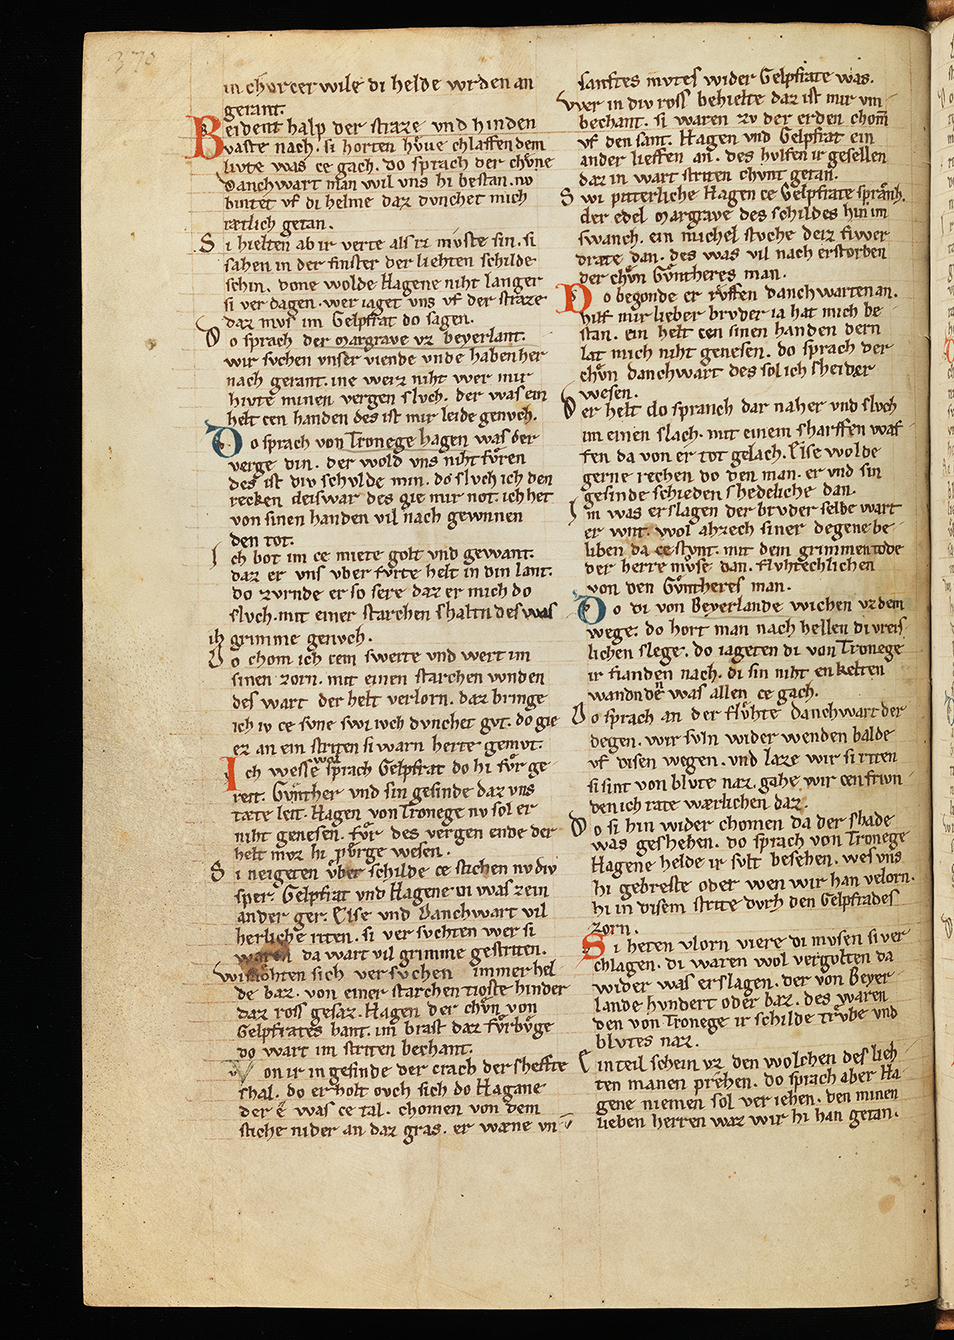 370
in chvrcer wile di helde wrden an
gerant.
Beident halp der straze vnd hinden
vaste nach. si horten hůue chlaffen dem
livte was ce gach. do sprach der chvne
Danchwart man wil vns hi bestan. nv
bintet vf di helme daz dvnchet mich
rætlich getan.
Si hielten ab ir verte als iz mvste sin. si
sahen in der finster der liehten schilde
schin. done wolde Hagene niht langer
si verdagen. wer iaget vns vf der straze
daz mvs im Gelpfrat do sagen.
Do sprach der margrave vz beyerlant.
wir svchen vnser viende vnde haben her
nach gerant. ine weiz niht wer mir
hivte minen vergen slvch. der was ein
helt cen handen des ist mir leide genvch.
Do sprach von Tronege hagen was der
verge din. der wold vns niht fůren
des ist div schvlde min. do slvch ich den
recken deiswar des gie mir not. ich het
von sinen handen vil nach gewnnen
den tot.
Ich bot im ce miete golt vnd gewant.
daz er vns vber fvrte helt in din lant.
do zvrnde er so sere daz er mich do
slvch. mit einer starchen shaltn des was
ih grimme genvch.
Do chom ich cem swerte vnd wert im
sinen zorn. mit einen starchen wnden
des wart der helt verlorn. daz bringe
ich iv ce svne swi ivch dvnchet gvt. do gie
ez an ein striten si warn herte gemvt.
Ich wesse wol sprach Gelpfrat do hi fůr ge
reit. Gvnther vnd sin gesinde daz vns
tæte leit. Hagen von Tronege nv sol er
niht genesen. fůr des vergen ende der
helt mvz hi půrge wesen.
Si neigeten vber schilde ce stichen nv div
sper. Gelpfrat vnd Hagene in was zein
ander ger. Else vnd Danchwart vil
herliche riten. si ver svchten wer si
waren da wart vil grimme gestriten.
wi mohten sich versvchen immer hel
de baz. von einer starchen tioste hinder
daz ross gesaz. Hagen der chůn von
Gelpfrates hant. im brast daz fůrbůge
do wart im striten bechant.
Von ir in gesinde der crach der sheffte
shal. do erholt ovch sich do Hagane
der e was ce tal. chomen von dem
stiche nider an daz gras. er wæne vn
sanftes mvtes wider Gelpfrate was.
Wer in div ross behielte daz ist mir vn
bechant. si waren zv der erden chom
vf den sant. Hagen vnd Gelpfrat ein
ander lieffen an. des hvlfen ir gesellen
daz in wart striten chvnt getan.
Swi pitterliche Hagen ce Gelpfrate spranch.
der edel margrave des schildes hin im
swanch. ein michel stvche deiz fiwer
dræte dan. des was vil nach erstorben
der chůn Gůntheres man.
Do begonde er rvffen danchwarten an.
hilf mir lieber brvder ia hat mich be
stan. ein helt cen sinen handen dern
lat mich niht genesen. do sprach der
chůn danchwart des sol ich sheider
wesen.
Der helt do spranch dar naher vnd slvch
im einen slach. mit einem sharffen waf
fen da von er tot gelach. Else wolde
gerne rechen do den man. er vnd sin
gesinde schieden shedeliche dan.
Im was erslagen der brvder selbe wart
er wnt. wol ahzech siner degene be
liben da ce stvnt. mit dem grimmen tode
der herre mvse dan. flvhtechlichen
von den Gůntheres man.
Do di von Beyerlande wichen vz dem
wege. do hort man nach hellen di vreis
lichen slege. do iageten di von Tronege
ir fianden nach. di sin niht enkelten
wandn den was allen ce gach.
Do sprach an der flvhte danchwart der
degen. wir svln wider wenden balde
vf disen wegen. vnd laze wir si riten
si sint von blvte naz. gahe wir cen frivn
den ich rate wærlichen daz.
Do si hin wider chomen da der shade
was geshehen. do sprach von Tronege
Hagene helde ir svlt besehen. wes vns
hi gebreste oder wen wir han velorn.
hi in disem strite dvrh den Gelpfrades
zorn.
Si heten vlorn viere di mvsen si ver
chlagen. di waren wol vergolten da
wider was erslagen. der von Beyer
lande hvndert oder baz. des waren
den von Tronege ir schilde trůbe vnd
blvtes naz.
Ein teil schein vz den wolchen des lieh
ten manen prehen. do sprach aber Ha
gene niemen sol ver iehen. den minen
lieben herren waz wir hi han getan.